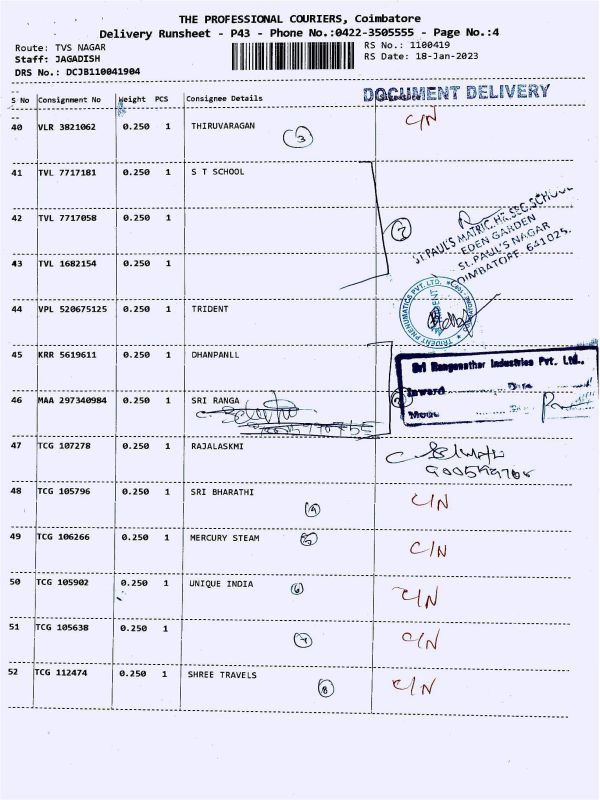 THE PROFESSIONAL COURIERS, Coimbatore
Delivery Runsheet - P43 - Phone No.:0422-3505555 - Page No.:4
Route: TVS NAGAR RS No.: 1100419
Staff: JAGADISH RS Date: 18-Jan-2023
DRS No.: DCJB110041904
DOCUMENT DELIVERY
S No Consignment No Weight PCS Consignee Details
40 VLR 3821062 0.250 1 THIRUVARAGAN C/N
3
41 TVL 7717181 0.250 1 S T SCHOOL
42 TVL 7717058 0.250 1
ST.PAUL'S MATRIC.HR.SEC.SCHOOL
EDEN GARDEN
St.PAUL'S NAGAR
COIMBATORE. 641025.
43 TVL 1682154 0.250 1
44 VPL 520675125 0.250 1 TRIDENT
TRIDENT PNEUMATICS PVT. LTD.
45 KRR 5619611 0.250 1 DHANPANLL
Sri Ranganathar Industries Pvt. Ltd.,
Inward Date
46 MAA 297340984 0.250 1 SRI RANGA
47 TCG 107278 0.250 1 RAJALASKMI
48 TCG 105796 0.250 1 SRI BHARATHI C/N
49 TCG 106266 0.250 1 MERCURY STEAM 5 C/N
50 TCG 105902 0.250 1 UNIQUE INDIA 6 C/N
51 TCG 105638 0.250 1 C/N
7
52 TCG 112474 0.250 1 SHREE TRAVELS C/N
8